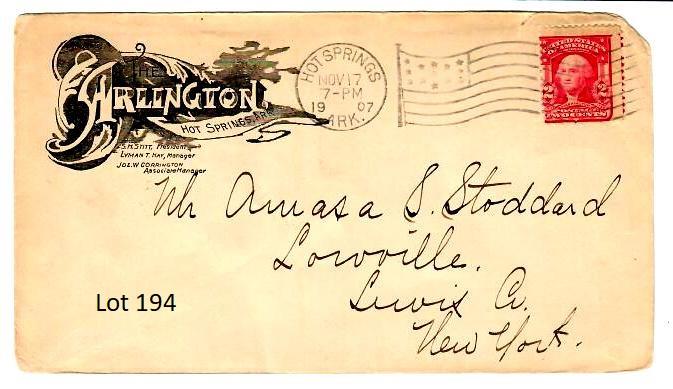 The
ARLINGTON,
HOT SPRINGS, ARK.
S.H. STITT, President
LYMAN T. HAY, Manager
JOE. W. CORRINGTON
Associate Manager
HOT SPRINGS
NOV 17
7-PM
19 07
ARK.
UNITED STATES
OF AMERICA
2 2
POSTAGE
TWO CENTS
Mr Amasa S. Stoddard
Lowville.
Lewis Co.
New York.
Lot 194